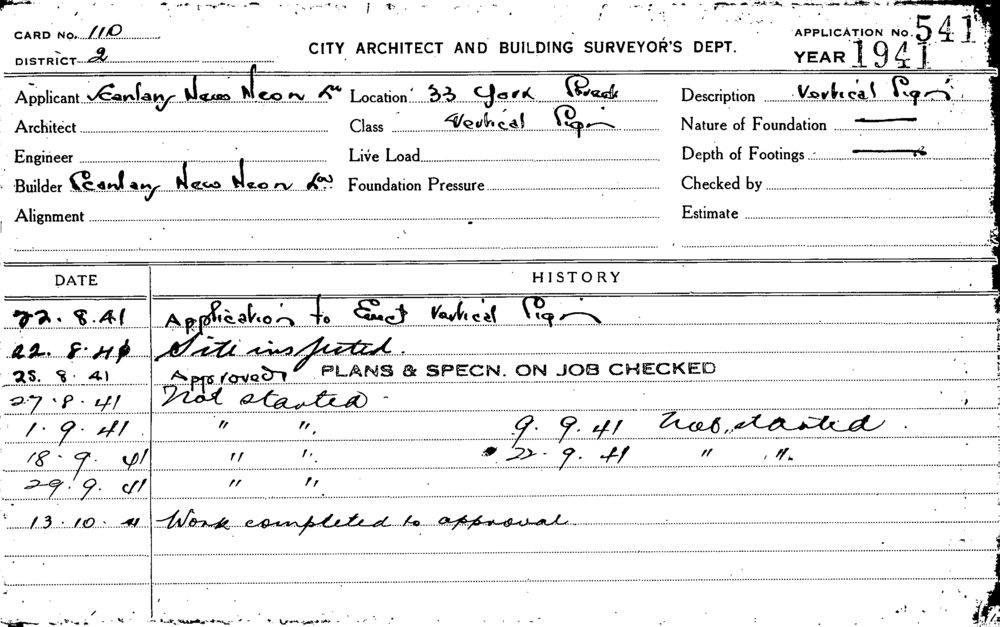 CARD No. 110
DISTRICT 2
CITY ARCHITECT AND BUILDING SURVEYOR'S DEPT.
APPLICATION No. 541
YEAR 1941
Applicant Neon Location 33 York Street Description Vertical Sign
Architect Class Vertical Sign Nature of Foundation —
Engineer Live Load Depth of Footings —
Builder Neon Foundation Pressure Checked by
Alignment Estimate
DATE HISTORY
22.8.41 Application to Erect Vertical Sign
22.8.41 Site inspected.
25.8.41 Approved PLANS & SPECN. ON JOB CHECKED
27.8.41 Not started
1.9.41 " ". 9.9.41 Not started.
18.9.41 " ". 22.9.41 " ".
29.9.41 " ".
13.10.41 Work completed to approval